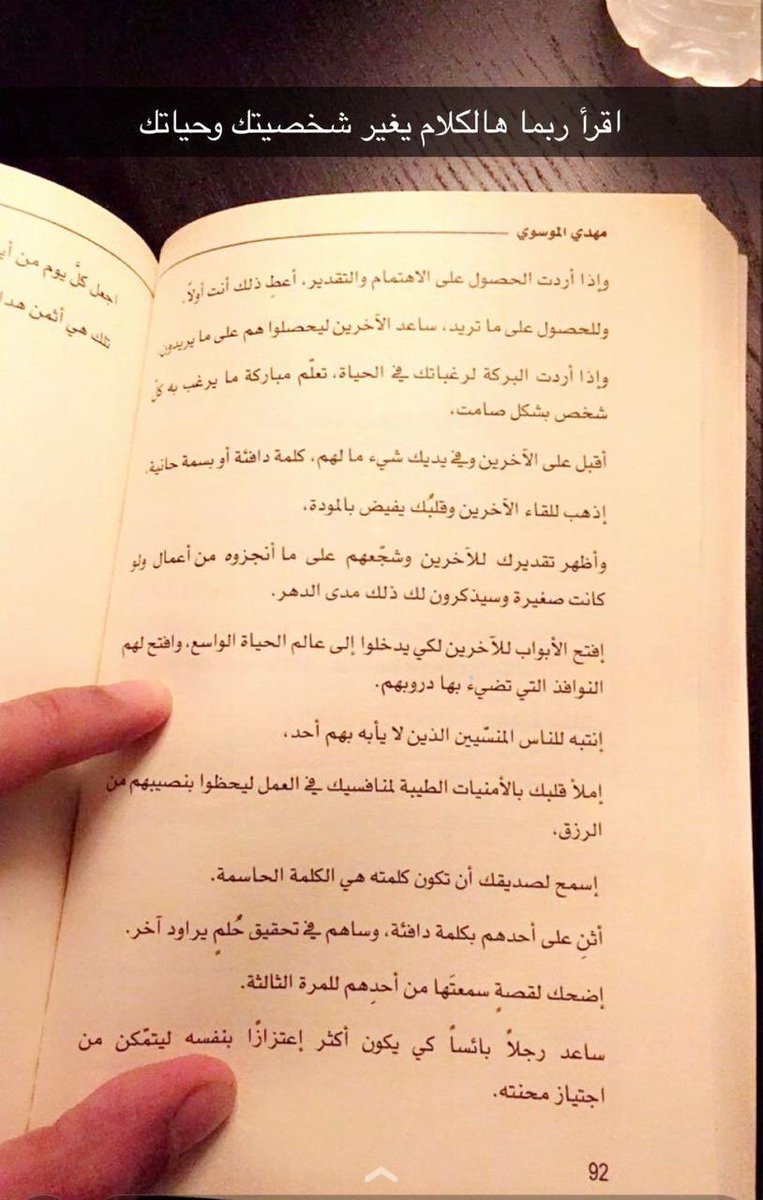 اقرأ ربما هالكلام يغير شخصيتك وحياتك
مهدي الموسوي
وإذا أردت الحصول على الاهتمام والتقدير، أعطِ ذلك أنت أولاً.
وللحصول على ما تريد، ساعد الآخرين ليحصلوا هم على ما يريدون.
وإذا أردت البركة لرغباتك في الحياة، تعلّم مباركة ما يرغب به كلّ
شخص بشكل صامت.
أقبل على الآخرين وفي يديك شيء ما لهم، كلمة دافئة أو بسمة حانية.
إذهب للقاء الآخرين وقلبُك يفيض بالمودة،
وأظهر تقديرك للآخرين وشجّعهم على ما أنجزوه من أعمال ولو
كانت صغيرة وسيذكرون لك ذلك مدى الدهر.
إفتح الأبواب للآخرين لكي يدخلوا إلى عالم الحياة الواسع، وافتح لهم
النوافذ التي تضيء بها دروبهم.
إنتبه للناس المنسّيين الذين لا يأبه بهم أحد،
إملأ قلبك بالأمنيات الطيبة لمنافسيك في العمل ليحظوا بنصيبهم من
الرزق،
إسمح لصديقك أن تكون كلمته هي الكلمة الحاسمة.
أثنِ على أحدهم بكلمة دافئة، وساهم في تحقيق حُلمٍ يراود آخر.
إضحك لقصةٍ سمعتَها من أحدِهم للمرة الثالثة.
ساعد رجلاً بائساً كي يكون أكثر إعتزازًا بنفسه ليتمّكن من
اجتياز محنته.
92
اجعل كلَّ يوم من
تلك هي أثمن